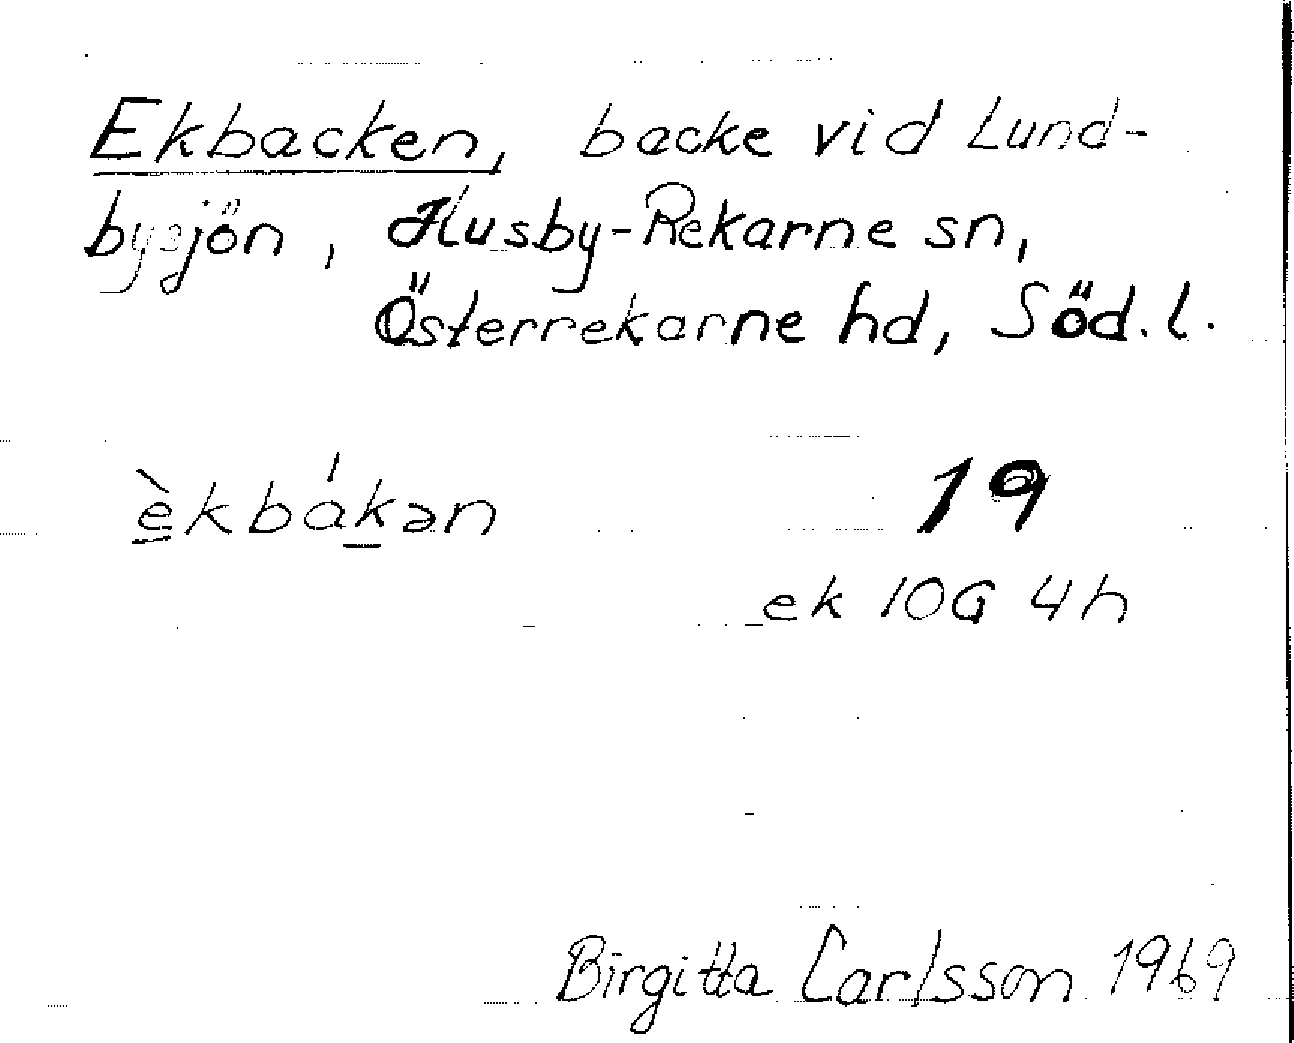 Ekbacken, backe vid Lund-
bysjön, Husby-Rekarne sn,
Österrekarne hd, Söd. l.
è̲kbák̲ən 19
ek 10G 4h
Birgitta Carlsson 1969